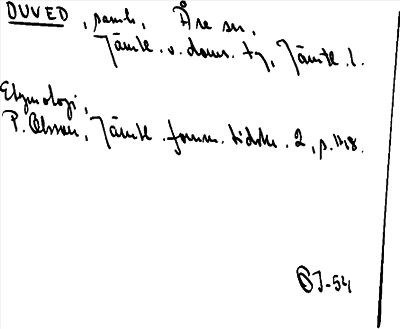 DUVED, samh., Åre sn,
Jämtl. v. doms. tg, Jämtl. l.
Etymologi,
P. Olsson, Jämtl. fornm. tidskr. 2, p. 118.
SJ-54